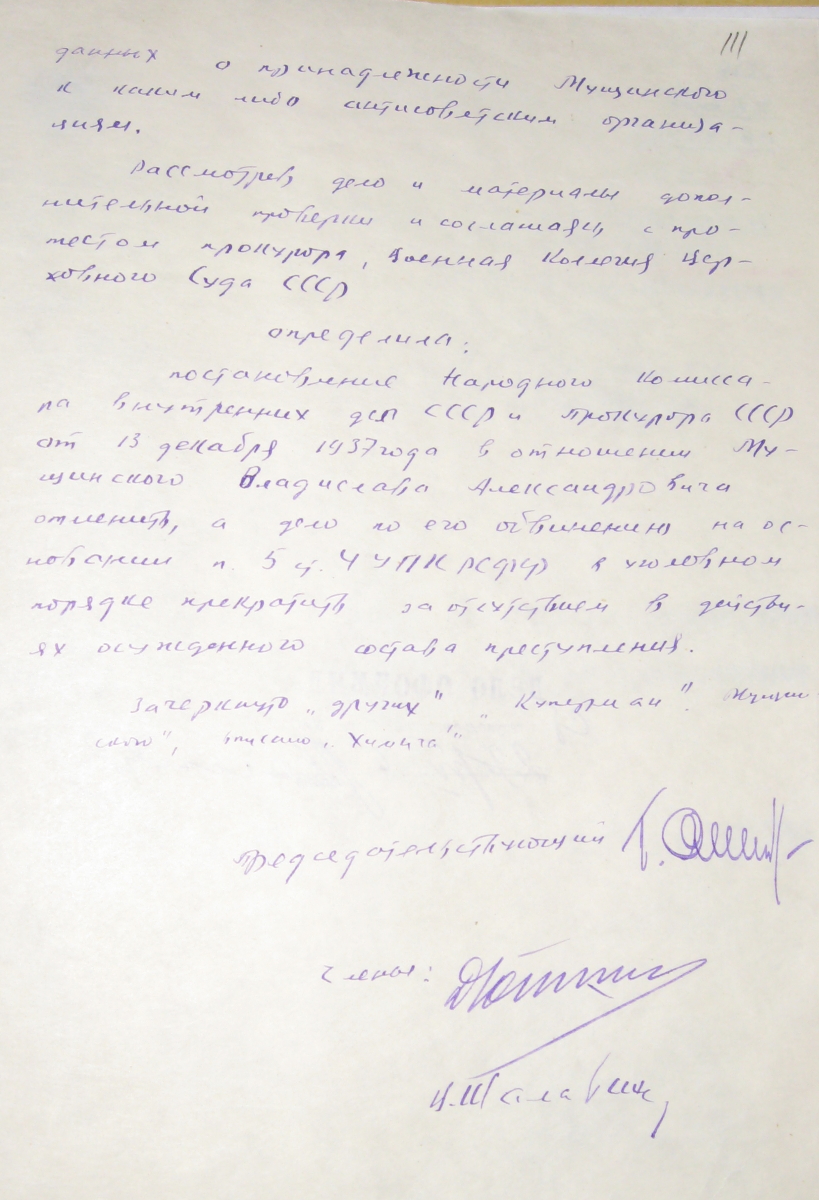 111
данных о принадлежности Мущинского
к каким либо антисоветским организа-
циям.
Рассмотрев дело и материалы допол-
нительной проверки и соглашаясь с про-
тестом прокурора, Военная Коллегия Вер-
ховного Суда СССР
определила:
постановление Народного Комисса-
ра внутренних дел СССР и Прокурора СССР
от 13 декабря 1937 года в отношении Му-
щинского Владислава Александровича
отменить, а дело по его обвинению на ос-
новании п. 5 ст. 4 УПК РСФСР в уголовном
порядке прекратить за отсутствием в действи-
ях осужденного состава преступления.
Зачеркнуто „других" „Куперман". Мущин-
ского", вписано
Председательствующий
Члены: